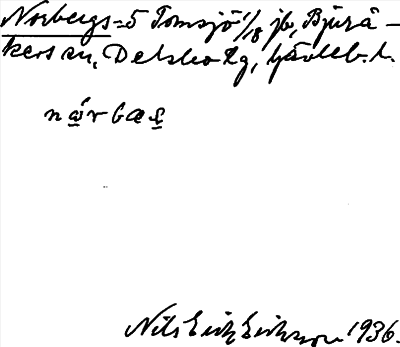 Norbergs=5 Tomsjö 1/18 jb, Bjurå-
kers sn, Delsbo tg, Gävleb. l.
nárbas
Nils Erik Eriksson 1936.